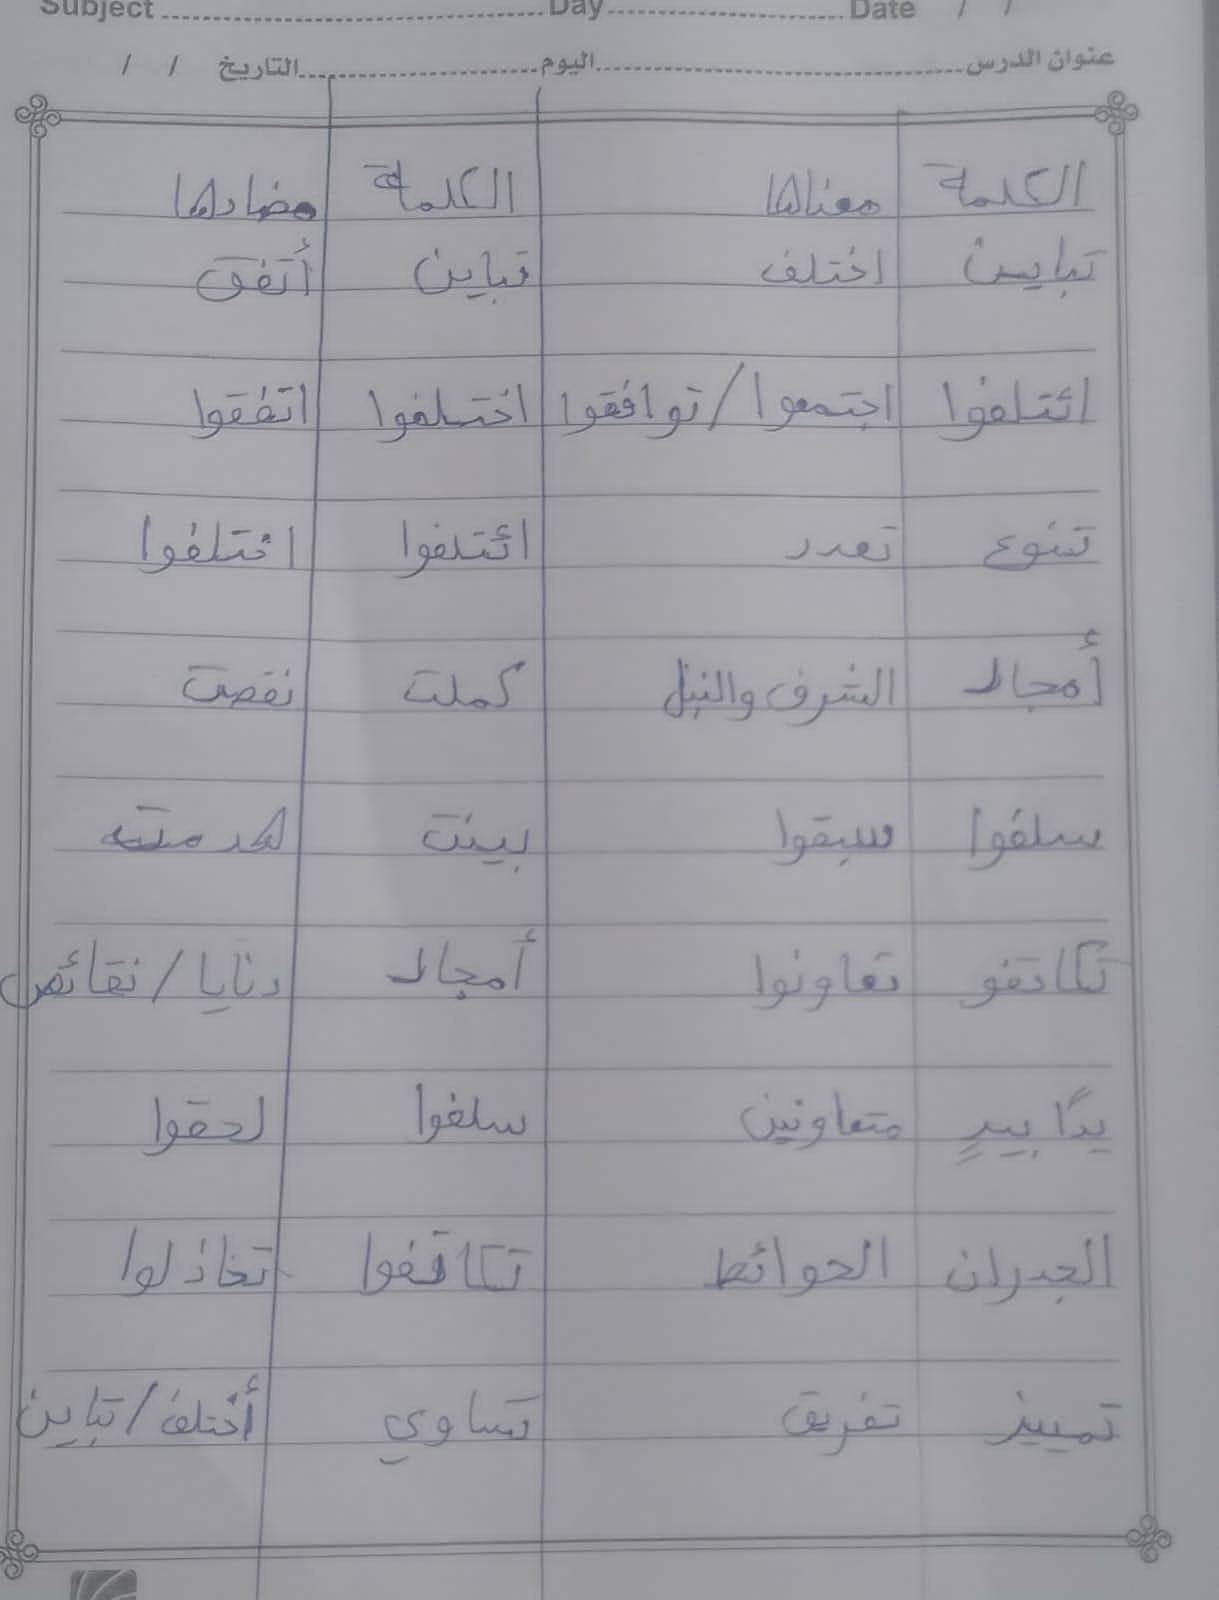 Subject Day Date / /
عنوان الدرس اليوم التاريخ / /
الكلمة معناها الكلمة مضادها
تباين اختلف تباين أتفق
ائتلفوا اجتمعوا / توافقوا اختلفوا اتفقوا
تنوع تعدد ائتلفوا اختلفوا
أمجاد الشرف والنبل كملت نقصت
سلفوا سبقوا بينت هدمت
تكاتفو تعاونوا أمجاد دنايا / نقائص
يدًا بيدٍ متعاونين سلفوا لحقوا
الجدران الحوائط تكاتفوا تخاذلوا
تمييز تفريق تساوي أختلف / تباين